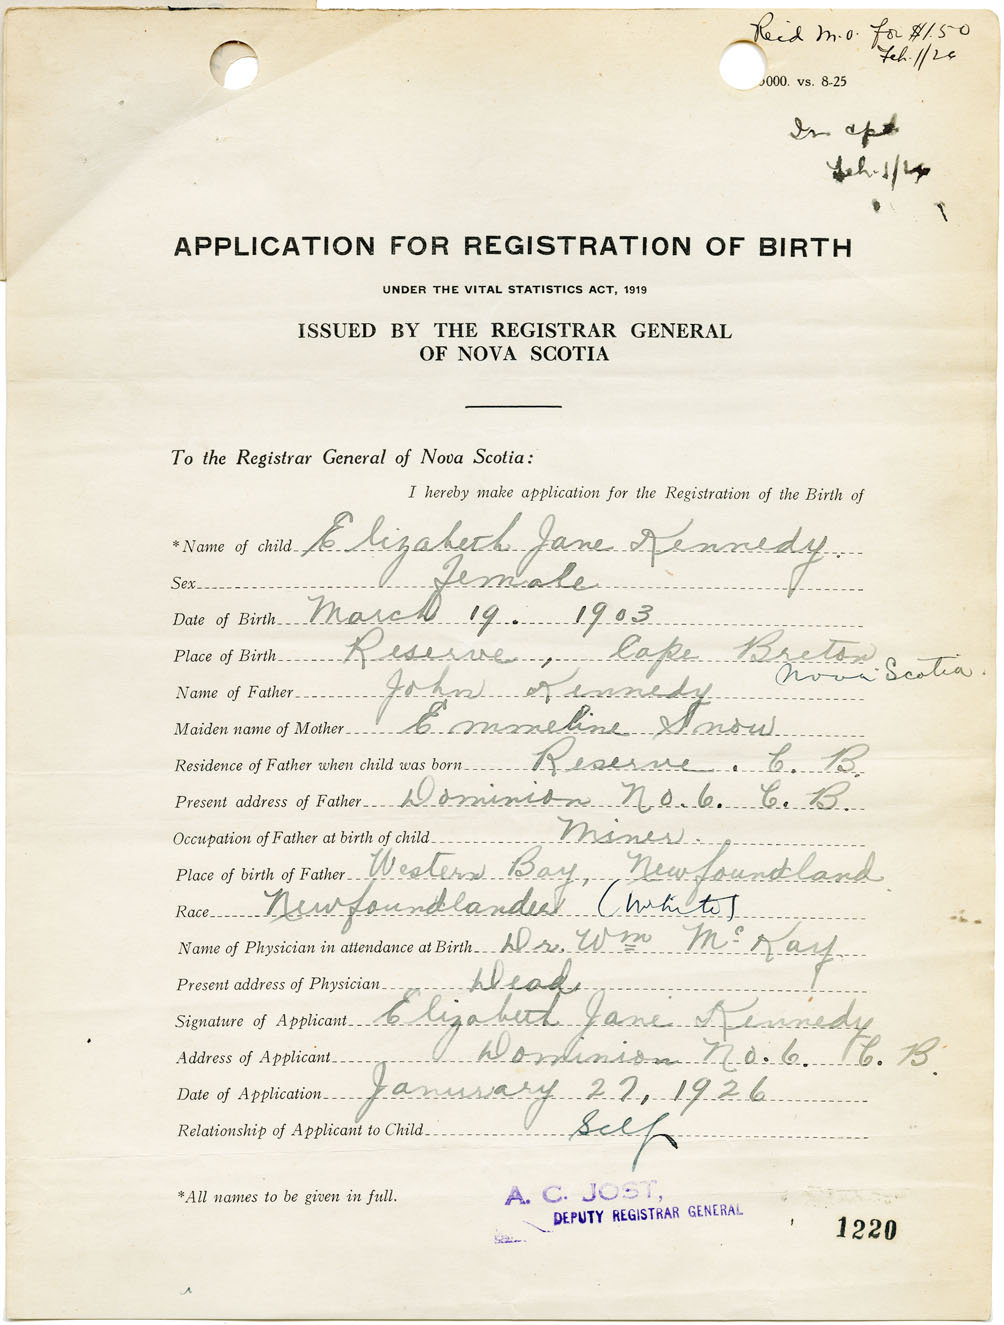 Reid M.O. for $1.50
Feb. 1/26
000. vs. 8-25
Feb. 1/26
APPLICATION FOR REGISTRATION OF BIRTH
UNDER THE VITAL STATISTICS ACT, 1919
ISSUED BY THE REGISTRAR GENERAL
OF NOVA SCOTIA
To the Registrar General of Nova Scotia:
I hereby make application for the Registration of the Birth of
*Name of child Elizabeth Jane Kennedy
Sex Female
Date of Birth March 19. 1903
Place of Birth Reserve, Cape Breton
Nova Scotia.
Name of Father John Kennedy
Maiden name of Mother Emmeline Snow
Residence of Father when child was born Reserve. C. B.
Present address of Father Dominion No. 6. C. B.
Occupation of Father at birth of child Miner.
Place of birth of Father Western Bay, Newfoundland
Race Newfoundlander (White)
Name of Physician in attendance at Birth Dr. Wm McKay
Present address of Physician Dead
Signature of Applicant Elizabeth Jane Kennedy
Address of Applicant Dominion No. 6. C. B.
Date of Application January 27, 1926
Relationship of Applicant to Child Self
*All names to be given in full.
A. C. JOST,
DEPUTY REGISTRAR GENERAL
1220